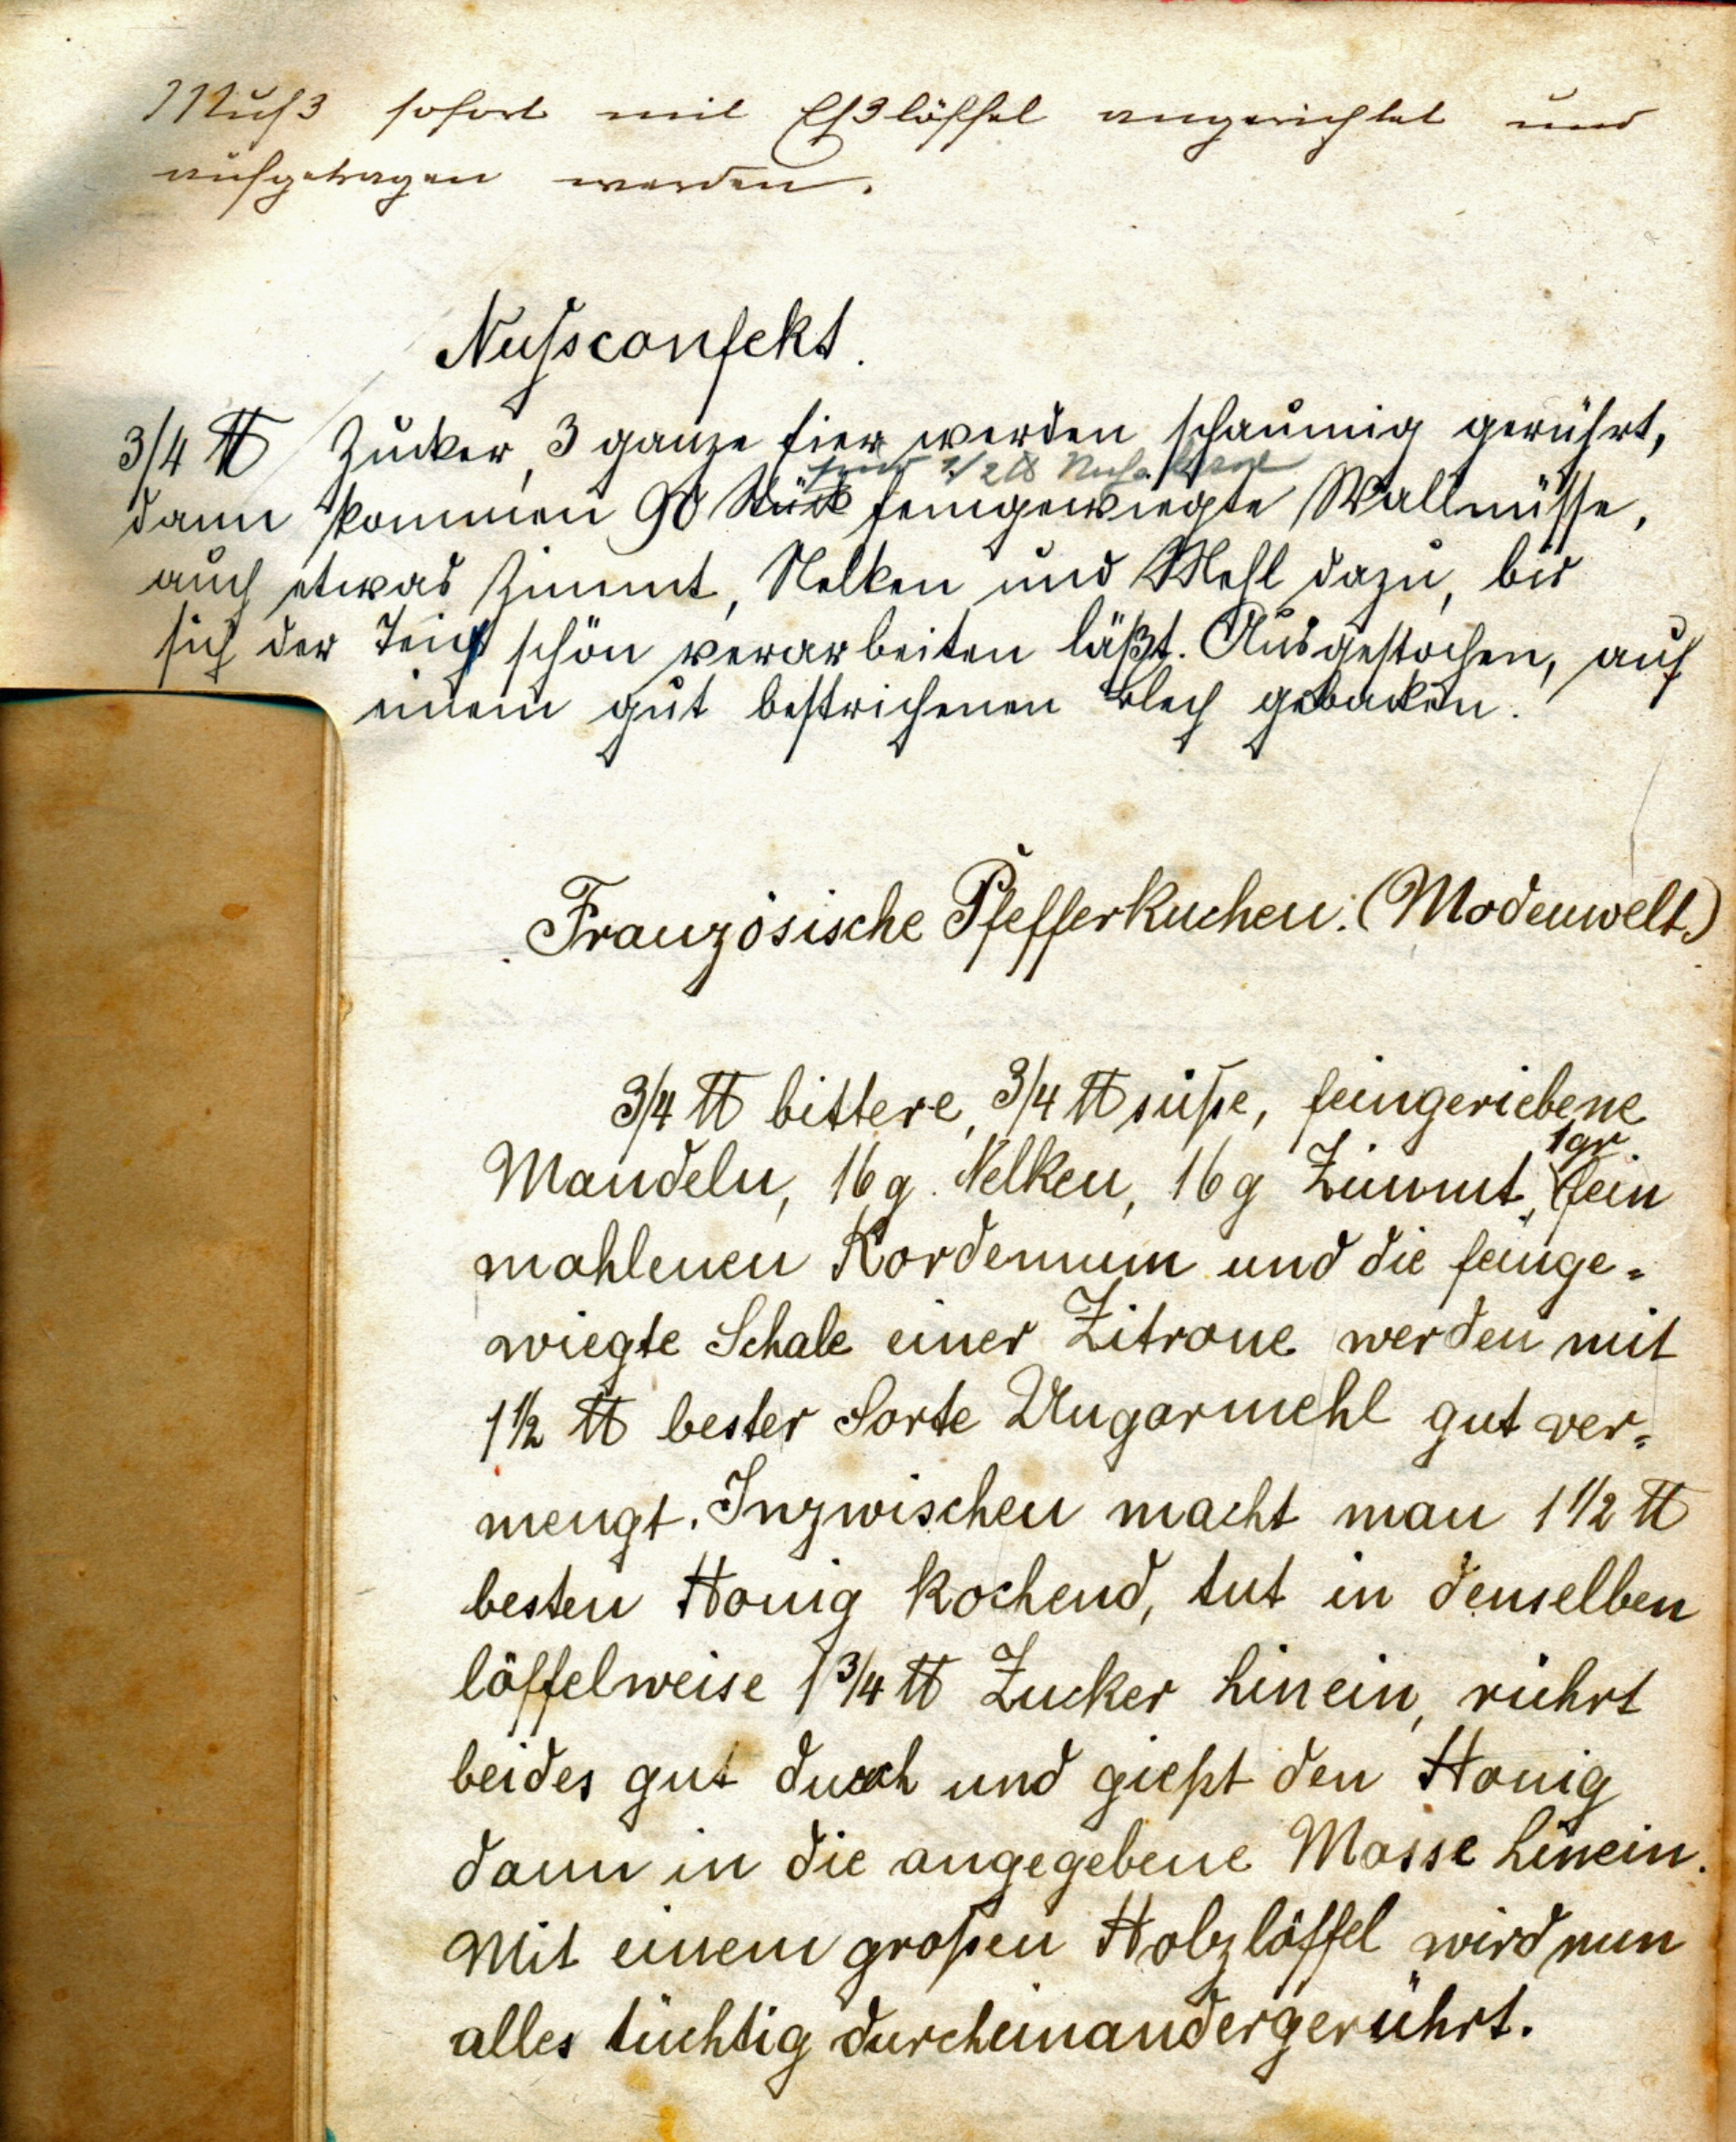 Muß sofort mit Eßlöffel angerichtet und
aufgetragen werden.
Nussconfekt.
3/4 ℔ Zucker, 3 ganze Eier werden schaumig gerührt,
1/2 ℔
dann kommen 90 Stück feingewiegte Wallnüsse,
auch etwas Zimmt, Nelken und Mehl dazu, bis
sich der Teig schön verarbeiten läßt. Ausgestochen, auf
einem gut bestrichenen Blech gebacken.
Französische Pfefferkuchen. (Modenwelt.)
3/4 ℔ bittere, 3/4 ℔ süße, feingeriebene
1gr
Mandeln, 16 g. Nelken, 16 g Zimmt, fein
mahlenen Kordemum und die feinge=
wiegte Schale einer Zitrone werden mit
1 1/2 ℔ bester Sorte Ungarmehl gut ver=
mengt. Inzwischen macht man 1 1/2 ℔
besten Honig kochend, tut in denselben
löffelweise 1 3/4 ℔ Zucker hinein, rührt
beides gut durch und gießt den Honig
dann in die angegebene Masse hinein.
Mit einem großen Holzlöffel wird nun
alles tüchtig durcheinandergerührt.